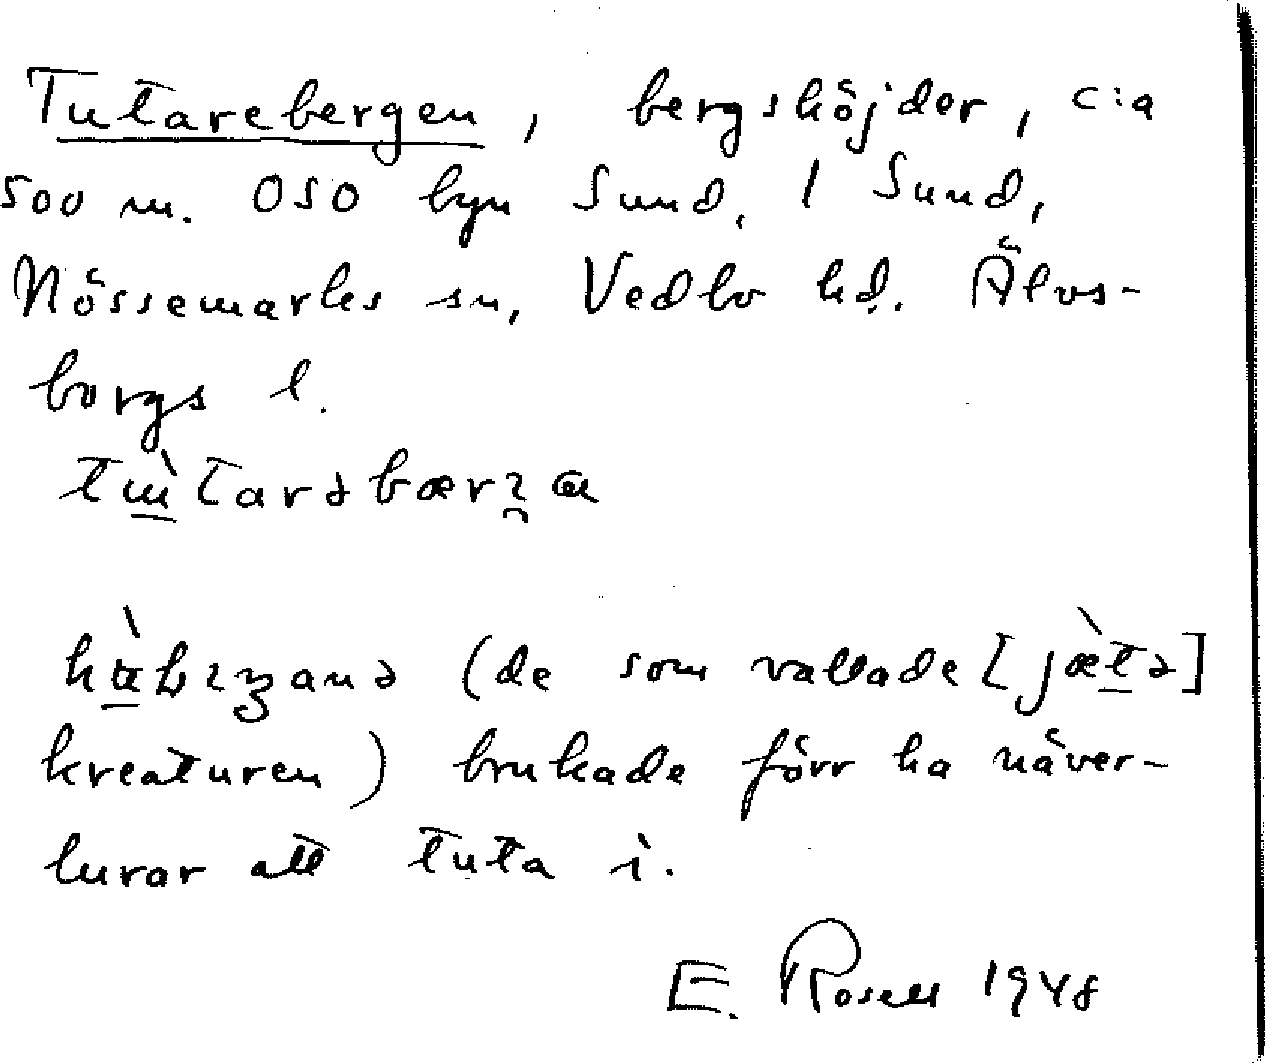 Tutarebergen, bergshöjder, c:a
500 m. OSO byn Sund, 1 Sund,
Nössemarks sn, Vedbo hd. Älvs-
borgs l.
(de som vallade
kreaturen) brukade förr ha näver-
lurar att tuta i.
E. Rosell 1948